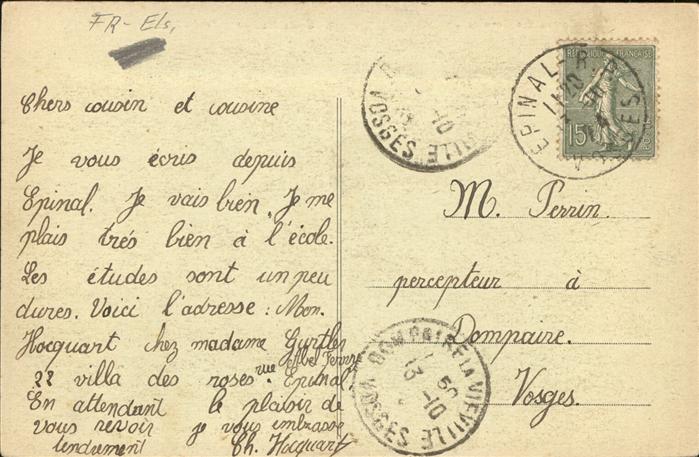 FR-Els,
Chers cousin et cousine
Je vous écris depuis
Epinal. Je vais bien. Je me
plais trés bien à l'école.
Les études sont un peu
dures. Voici l'adresse: Mon.
Hocquart chez madame Gurtler
22 villa des roses. rue Abel Ferry
Epinal
En attendant le plaisir de
vous revoir je vous embrasse
tendrement
Ch. Hocquart
VOSGES
10
EPINAL
VOSGES
REPUBLIQUE FRANÇAISE
15
M. Perrin.
percepteur à
Dompaire.
Vosges.
DOMPAIRE LA VIEVILLE
13-10
VOSGES